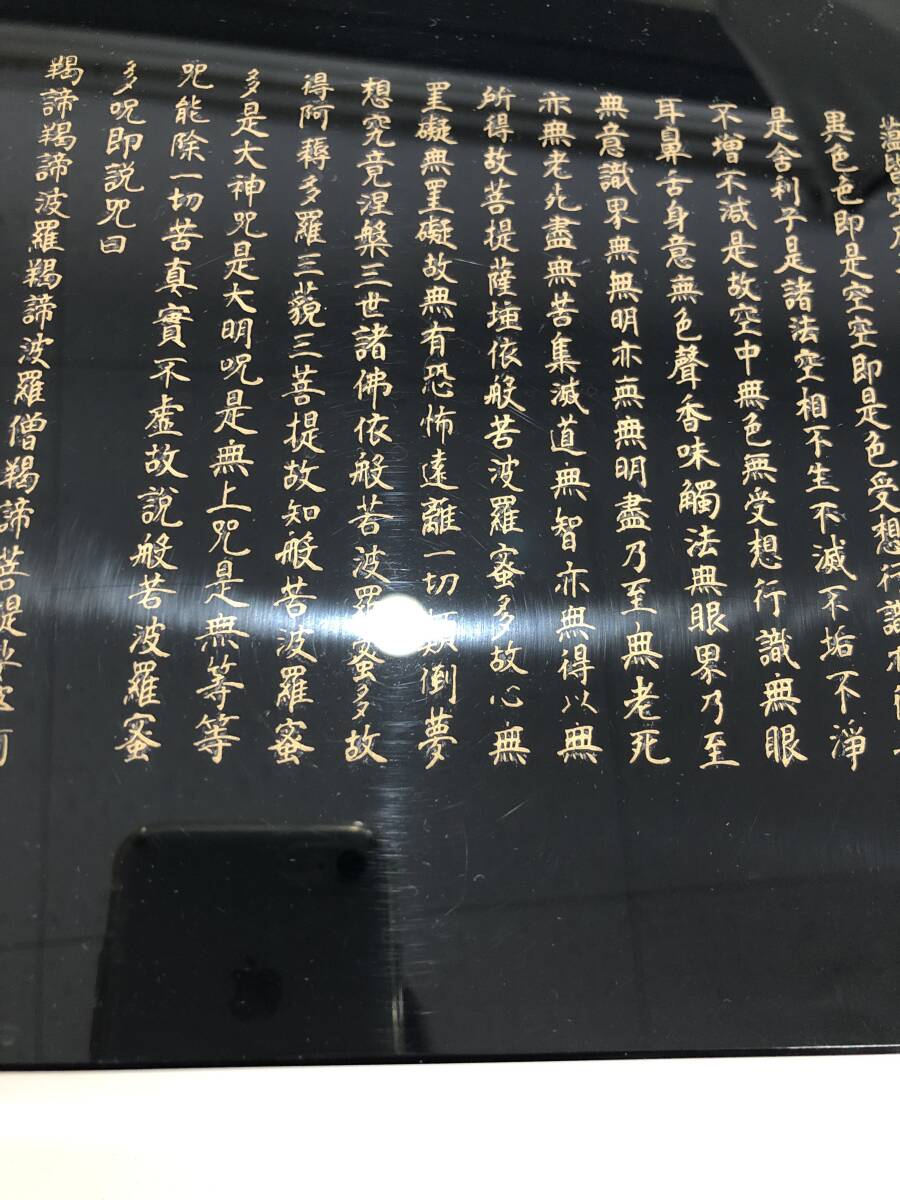 蘊皆空
異色色即是空空即是色受想行識亦復
是舍利子是諸法空相不生不滅不垢不淨
不增不減是故空中無色無受想行識無眼
耳鼻舌身意無色聲香味觸法無眼界乃至
無意識界無無明亦無無明盡乃至無老死
亦無老死盡無苦集滅道無智亦無得以無
所得故菩提薩埵依般若波羅蜜多故心無
罣礙無罣礙故無有恐怖遠離一切顛倒夢
想究竟涅槃三世諸佛依般若波羅蜜多故
得阿耨多羅三藐三菩提故知般若波羅蜜
多是大神咒是大明呪是無上咒是無等等
咒能除一切苦真實不虛故說般若波羅蜜
多呪即說咒曰
羯諦羯諦波羅羯諦波羅僧羯諦菩提娑婆訶